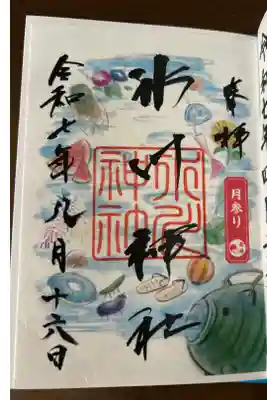 奉拝
月参り
氷川神社
氷川神社
令和七年八月十六日